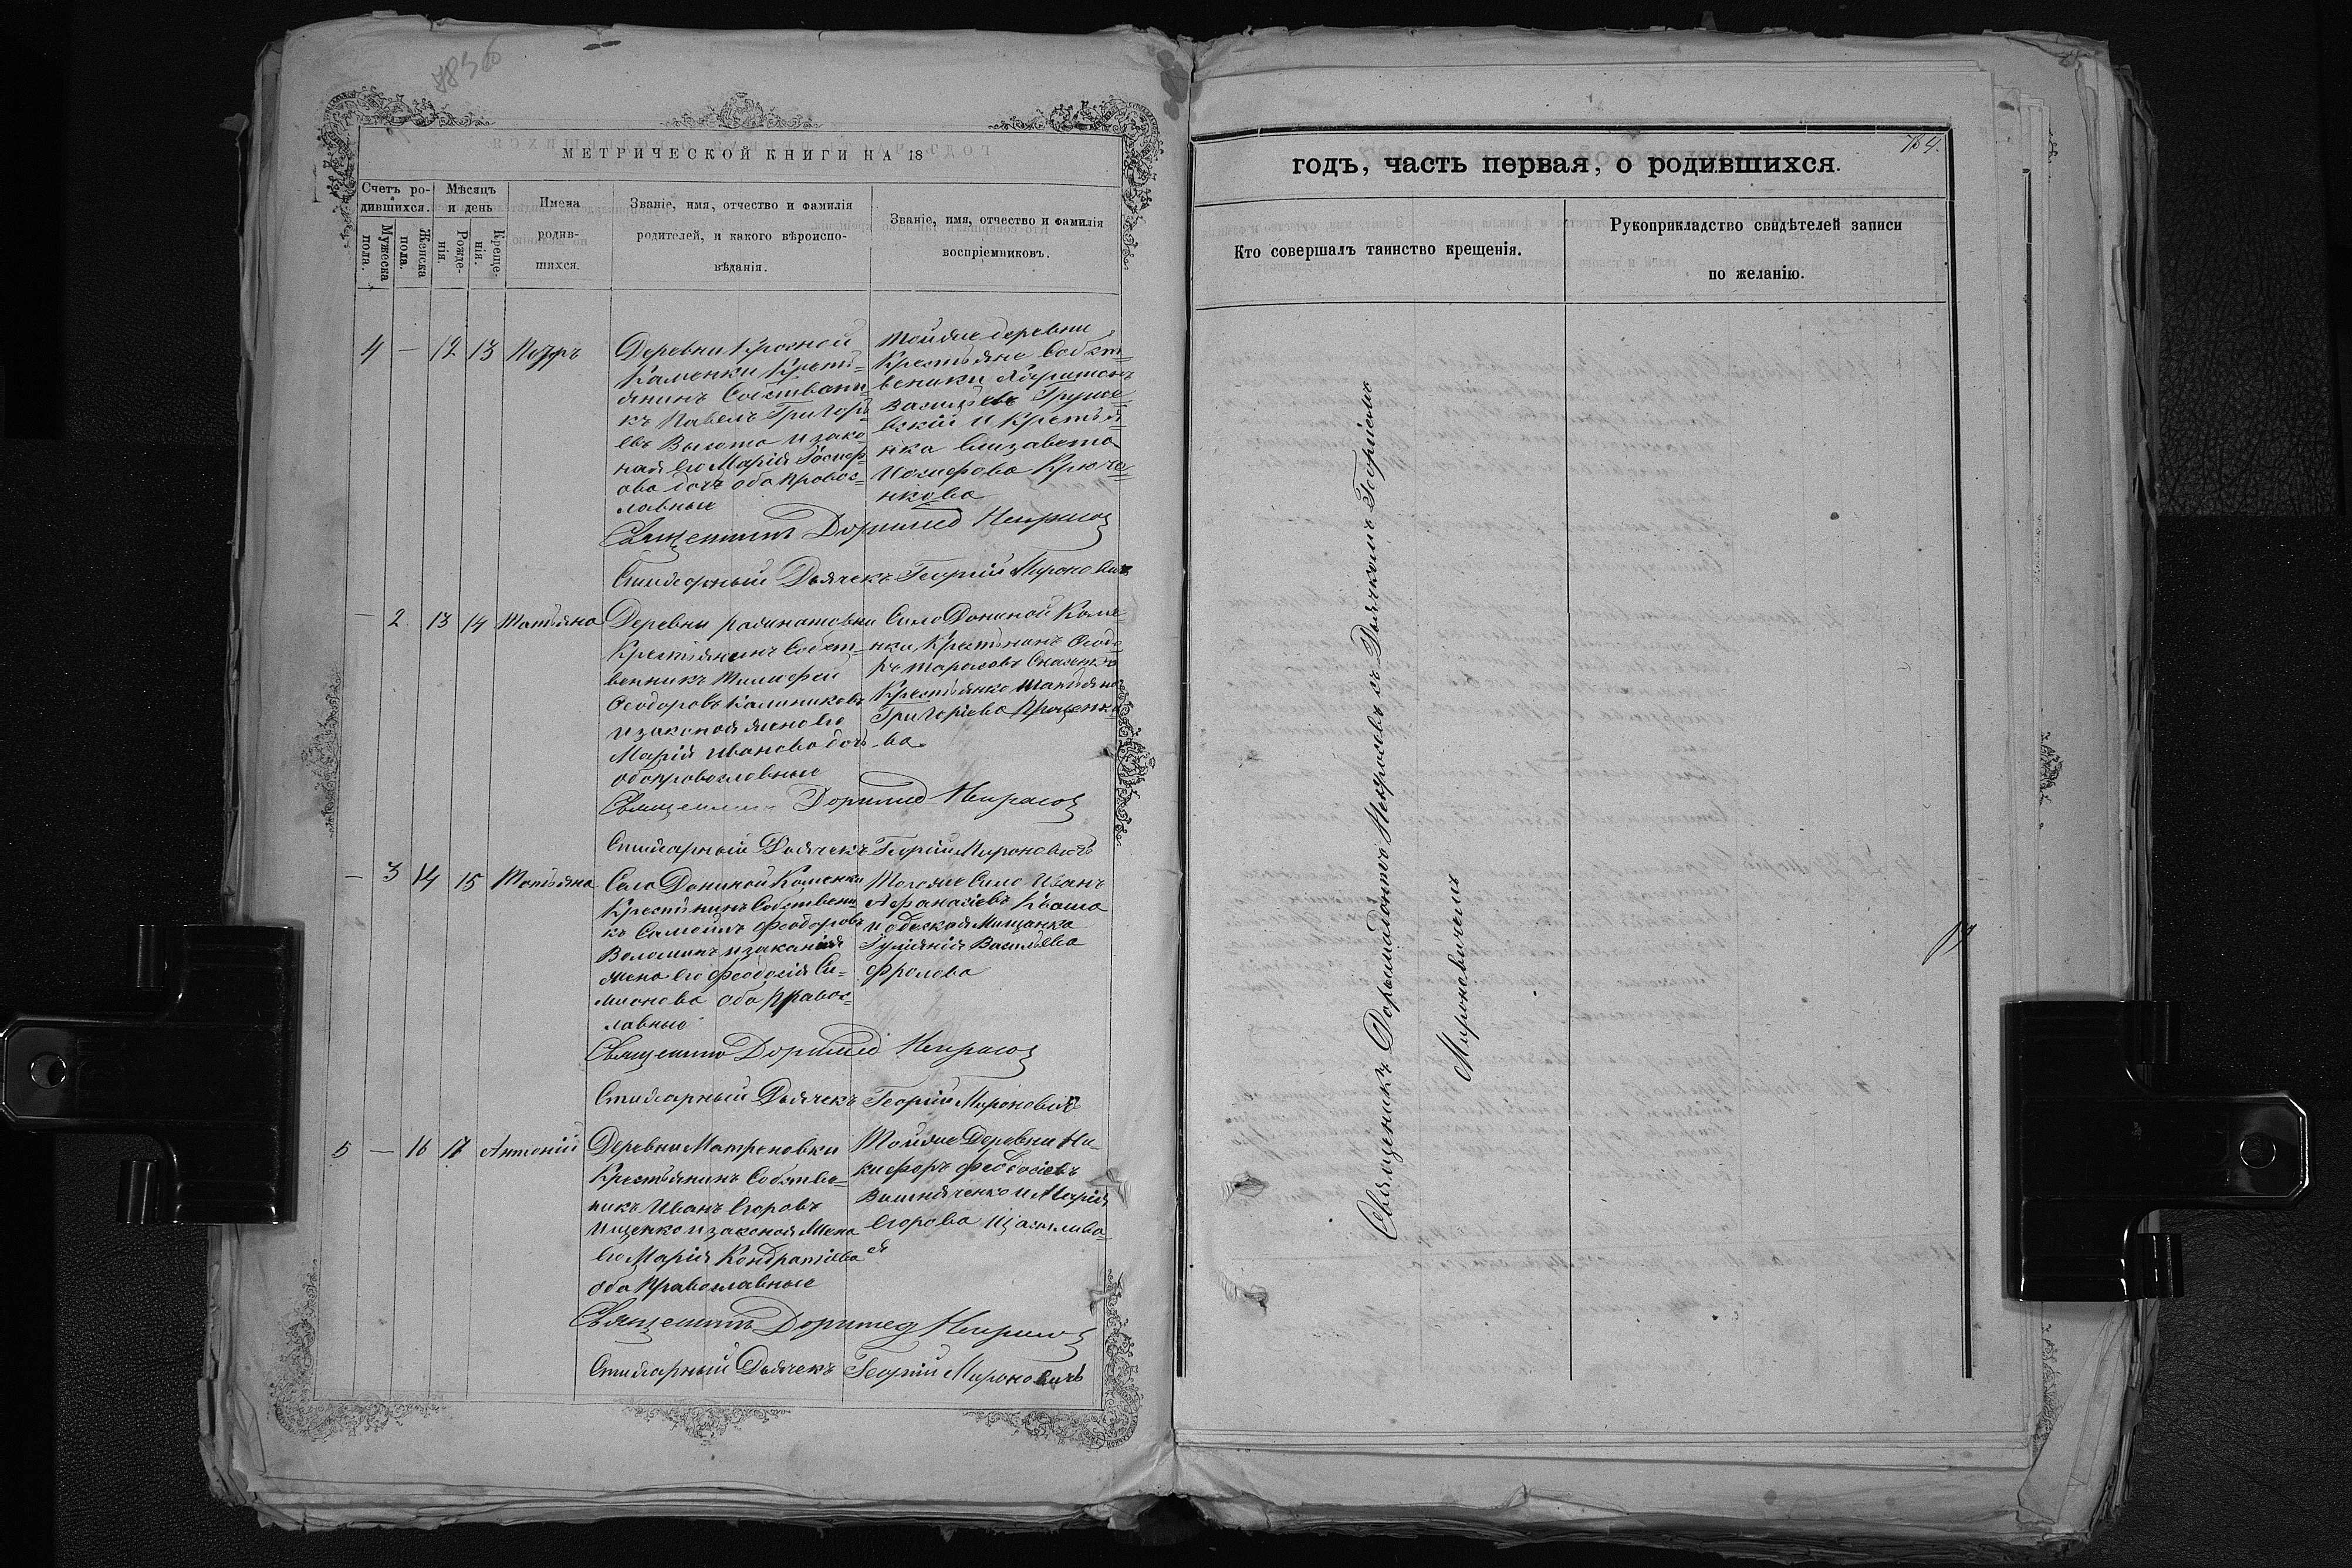 МЕТРИЧЕСКОЙ КНИГИ НА 18
Счетъ ро-
дившихся.
Мужеска
пола.
Женска
пола.
Мѣсяцъ
и день
Рожде-
нія.
Креще-
нія.
Имена
родив-
шихся.
Званіе, имя, отчество и фамилія
родителей, и какого вѣроиспо-
вѣданія.
Званіе, имя, отчество и фамилія
воспріемниковъ.
4 — 12 13 Петръ
Деревни Красной
Каменки Кресть-
янинъ Собствени
къ Павелъ Григорь
евъ Высота и зако
ная его Марія Іосиф
ова дочь оба правос=
лавные
Тойже деревни
Крестьяне Собст=
веники Харитонъ
Васильевъ Груше
вскій и Крестья
нка Елизавета
Иосифова Крюче=
нкова
Священникъ Доримед Некрасов
Стихарный Дьячекъ Георгій Мироновичъ
— 2 13 14 Татьяна
Деревни
Крестьянинъ Собст-
венникъ Тимофей
Феодоровъ Калиниковъ
и законая жена его
Марія Иванова дочь
оба православные
Село Дониной Каме
нки Крестьянинъ Феодо
ръ Тарасовъ
Крестьянка Татьяна
Григоріева Проценко
ва
Священникъ Доримед Некрасов
Стихарный Дьячекъ Георгій Мироновичъ
— 3 14 15 Татьяна
Села Дониной Каменки
Крестьянинъ Собствени
къ Самоилъ Феодоровъ
Волошинъ и законая
жена его Феодосія Си=
мионова оба Правос=
лавные
Тогоже Села Иванъ
Афанасіевъ Кваша
и одеская Мищанка
Іуліянія Васильева
Фролова
Священникъ Доримед Некрасов
Стихарный Дьячекъ Георгій Мироновичъ
5 — 16 17 Антоній
Деревни Матреновки
Крестьянинъ Собстве=
никъ Иванъ Егоровъ
Ищенко и законая Жена
его Марія Кондратіева
оба Православные
Тойже Деревни Ни=
кифоръ Феодосіевъ
Вишняченко и Марія
Егорова Щаслива=
ея
Священникъ Доримед Некрасов
Стихарный Дьячекъ Георгій Мироновичъ
годъ, часть первая, о родившихся.
Кто совершалъ таинство крещенія.
Рукоприкладство свидѣтелей записи
по желанію.
Священникъ Дорымидонтъ Некрасовъ съ Дьячкомъ Георгіемъ
Мироновичемъ